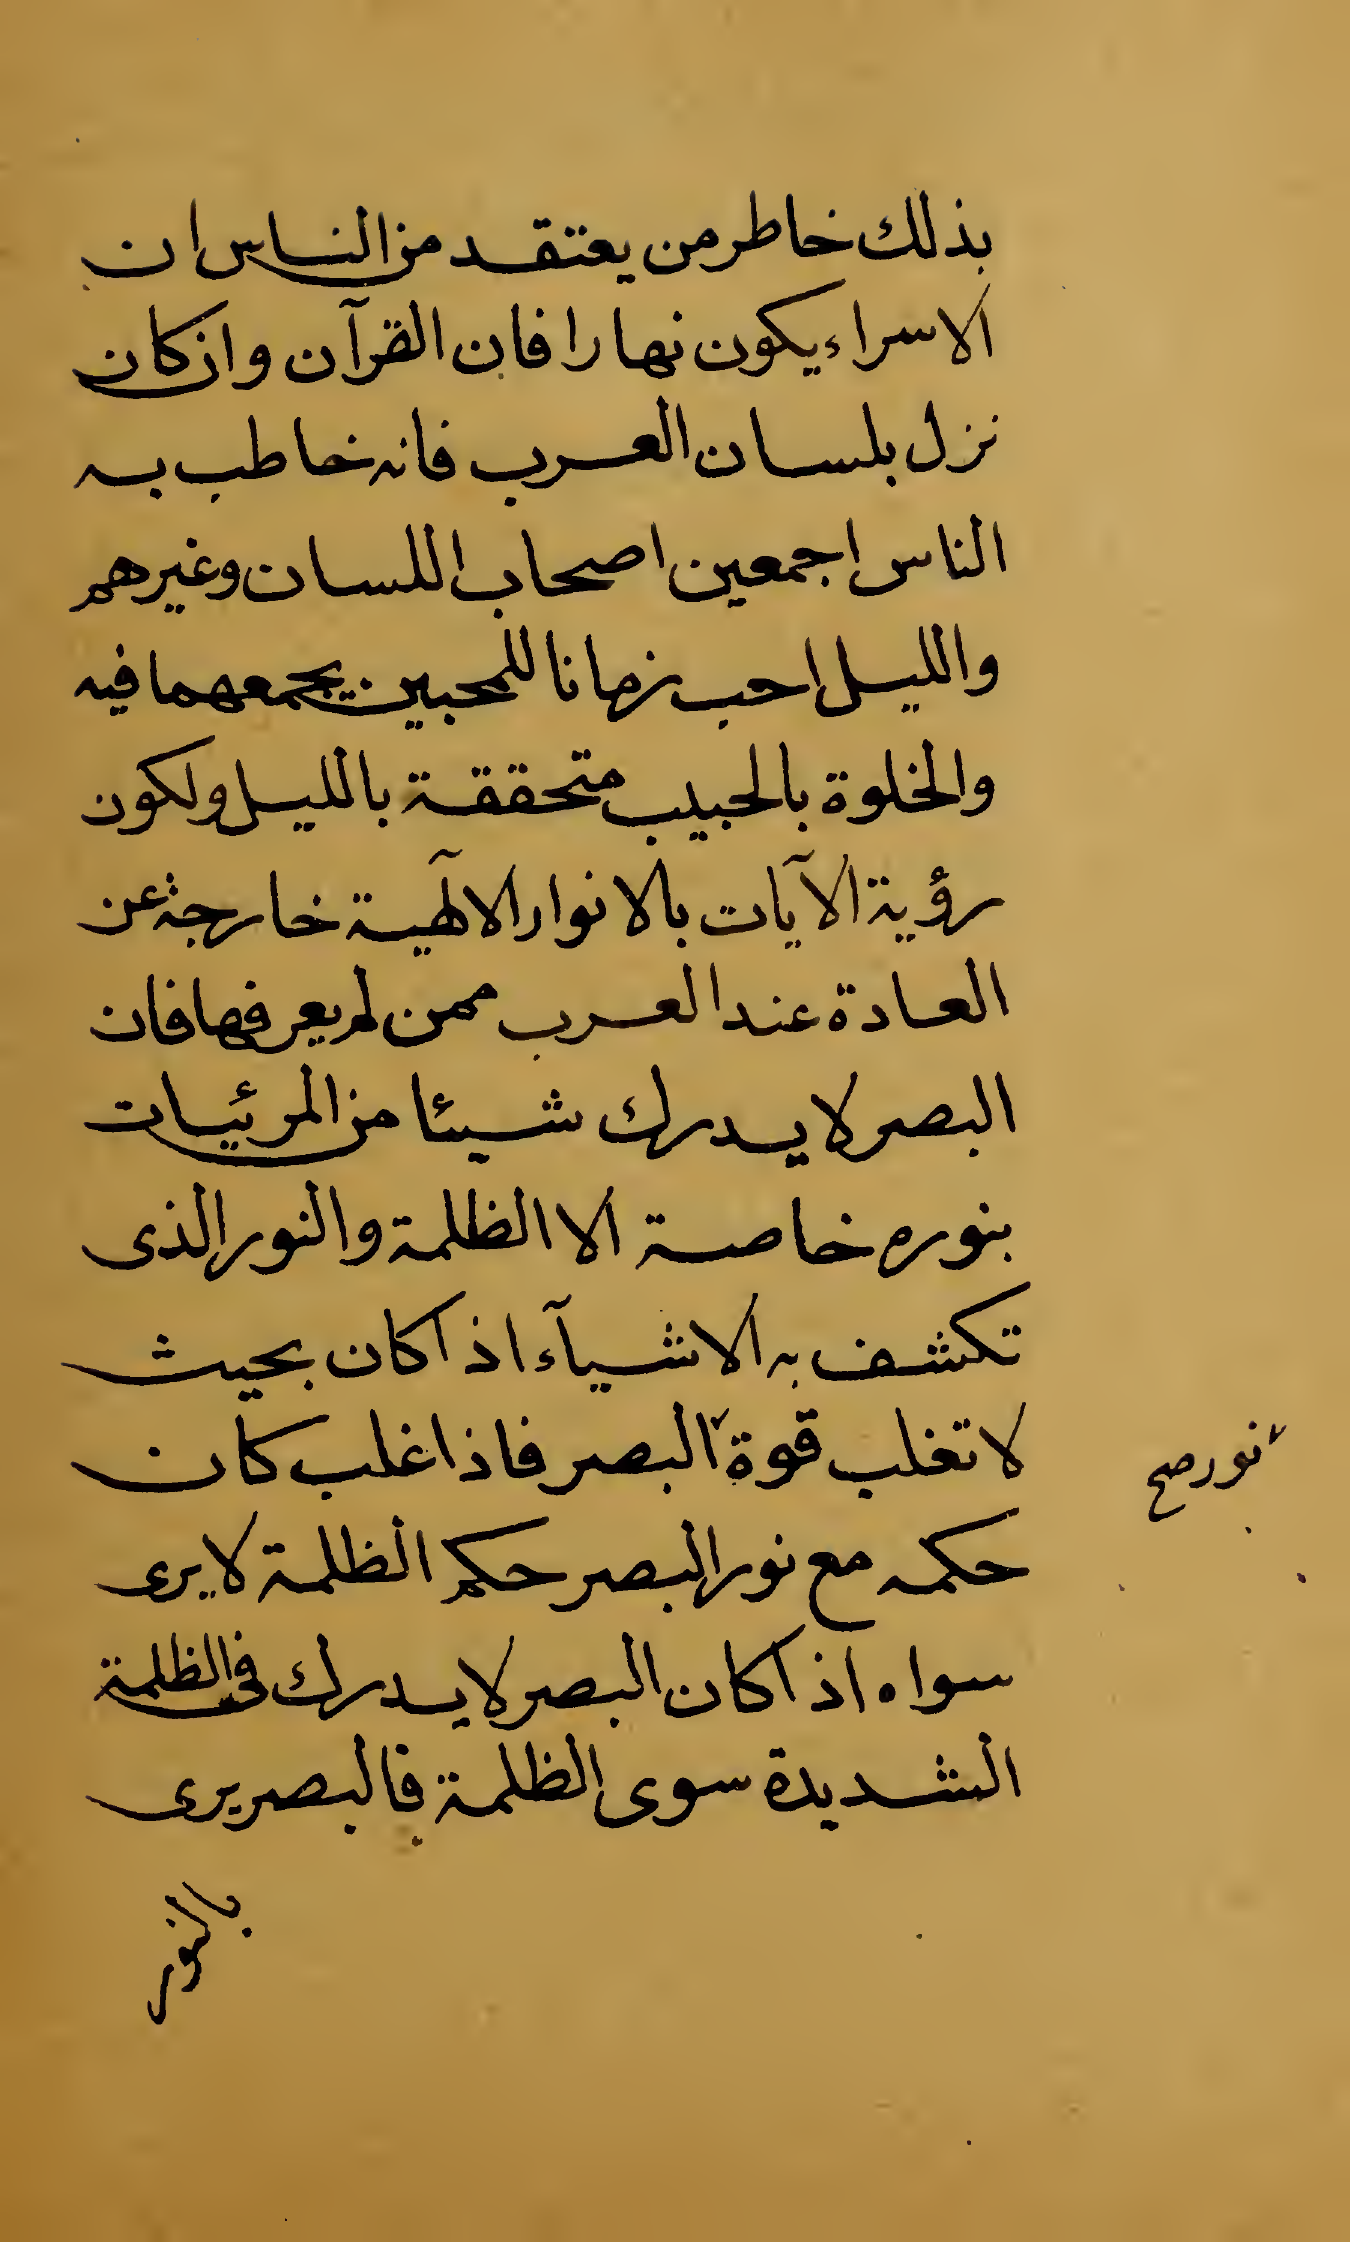 بذلك خاطر من يعتقد من الناس ان
الاسراء يكون نهارا فان القرآن وان كان
نزل بلسان العرب فانه خاطب به
الناس اجمعين اصحاب اللسان وغيرهم
والليل احب زمانا للمحبين يجمعهما فيه
والخلوة بالحبيب متحققة بالليل ولكون
رؤية الآيات بالانوار الالٓهية خارجة عن
العادة عند العرب ممن لم يعرفها فان
البصر لا يدرك شيئا من المرئيات
بنوره خاصة الا الظلمة والنور الذى
تكشف به الاشيآء اذا كان بحيث
لا تغلب قوة البصر فاذا غلب كان
نور صح
حكمه مع نور البصر حكم الظلمة لا يرى
سواه اذا كان البصر لا يدرك فى الظلمة
الشديدة سوى الظلمة فالبصر يرى
بالنور